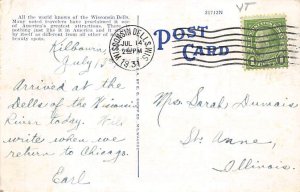 All the world knows of the Wisconsin Dells.
Many noted travelers have proclaimed it one
of America's greatest attractions. There is
nothing just like it in America and it is
by itself as different from all other of
beauty spots.
21712N
VT
POST
CARD
WISCONSIN DELLS, WIS.
JUL 14
PM
1931
Kilbourn
July
Arrived at the
dells of the Wisconsin
River today. Will
write when we
return to Chicago.
Earl
Miss Sarah Dumais
St. Anne,
Illinois.